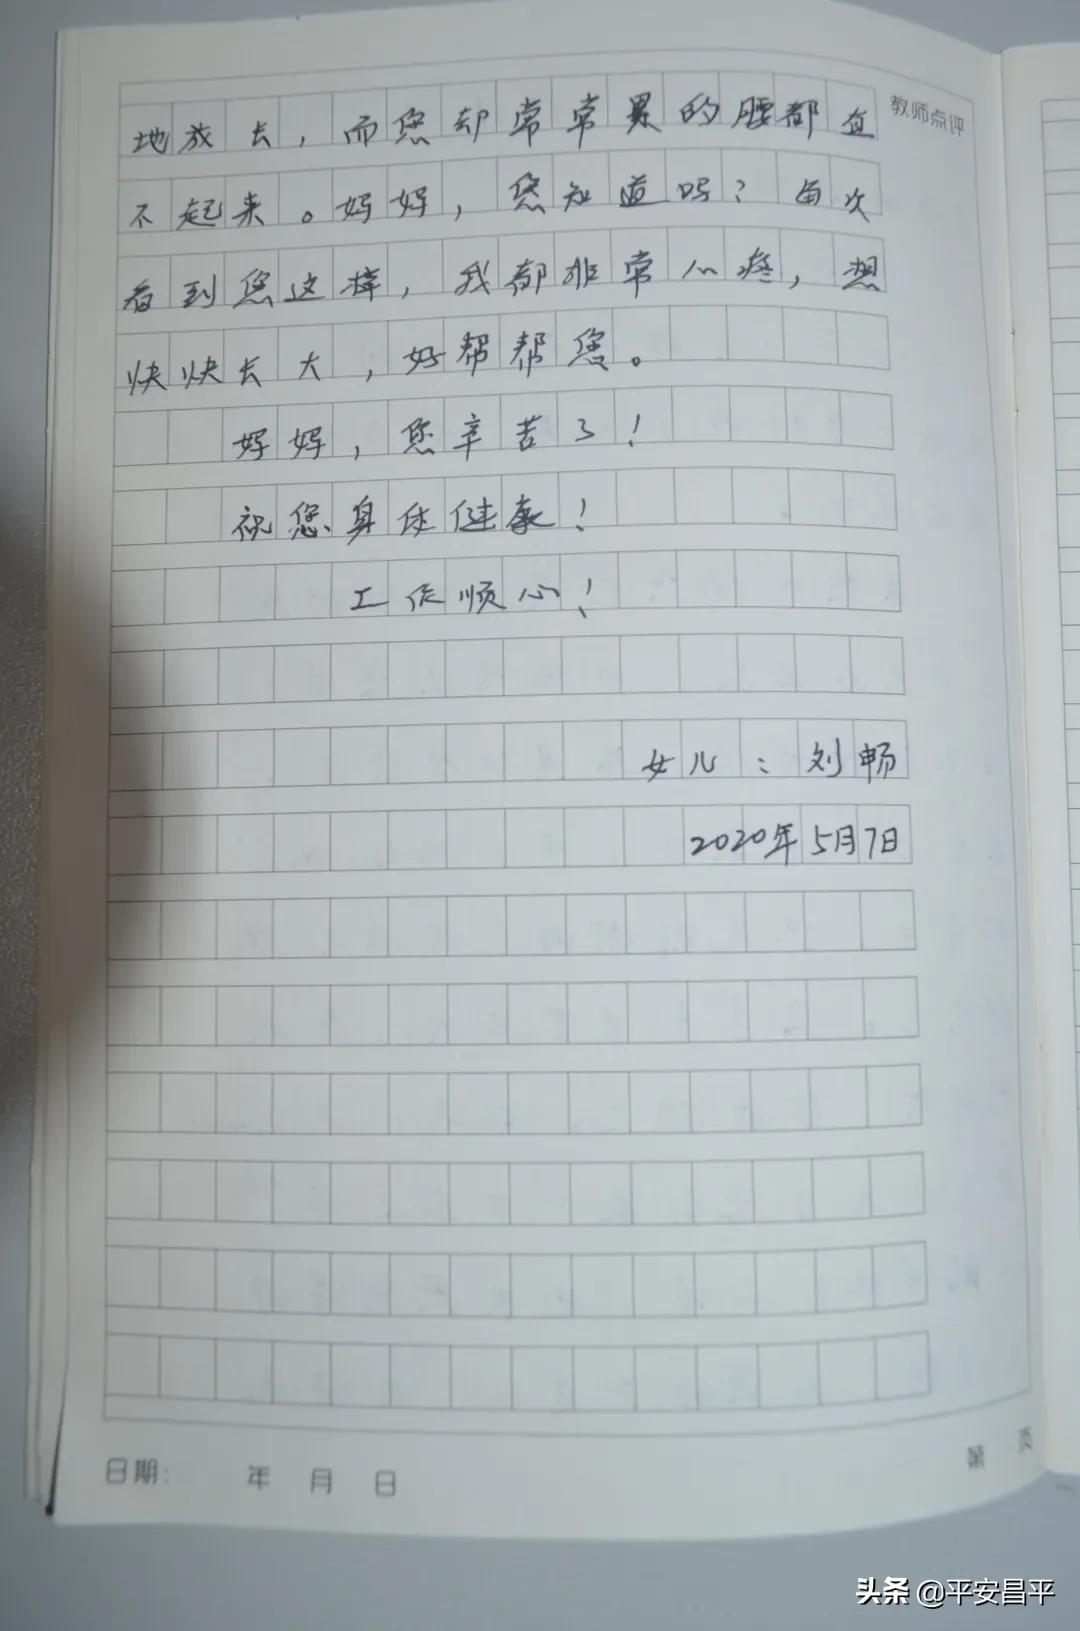 地放去，而您却常常累的腰都直
教师点评
不起来。妈妈，您知道吗？每次
看到您这样，我都非常心疼，想
快快长大，好帮帮您。
妈妈，您辛苦了！
祝您身体健康！
工作顺心！
女儿：刘畅
2020年5月7日
日期： 年 月 日
第 页
头条 @平安昌平